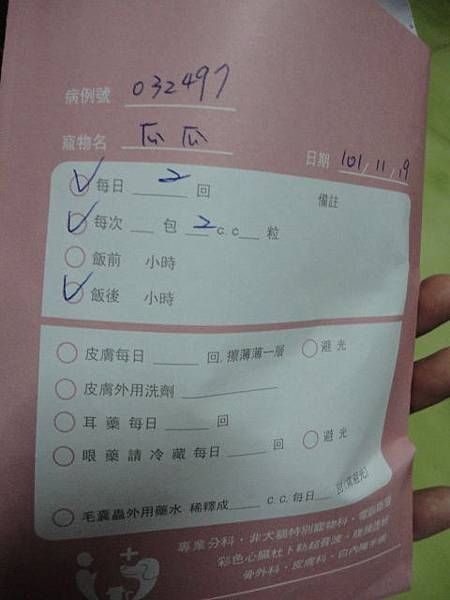 病例號 032497
寵物名 瓜瓜
日期 101/11/19
每日 2 回
備註
每次 包 2 c.c 粒
飯前 小時
飯後 小時
皮膚每日 回,擦薄薄一層 避光
皮膚外用洗劑
耳藥 每日 回
眼藥請冷藏 每日 回 避光
毛囊蟲外用藥水 稀釋成 C.C.每日 回(需避光)
專業分科·非犬貓特別寵物科·
彩色心臟杜卜勒超音波·
骨外科·皮膚科·白內障手術